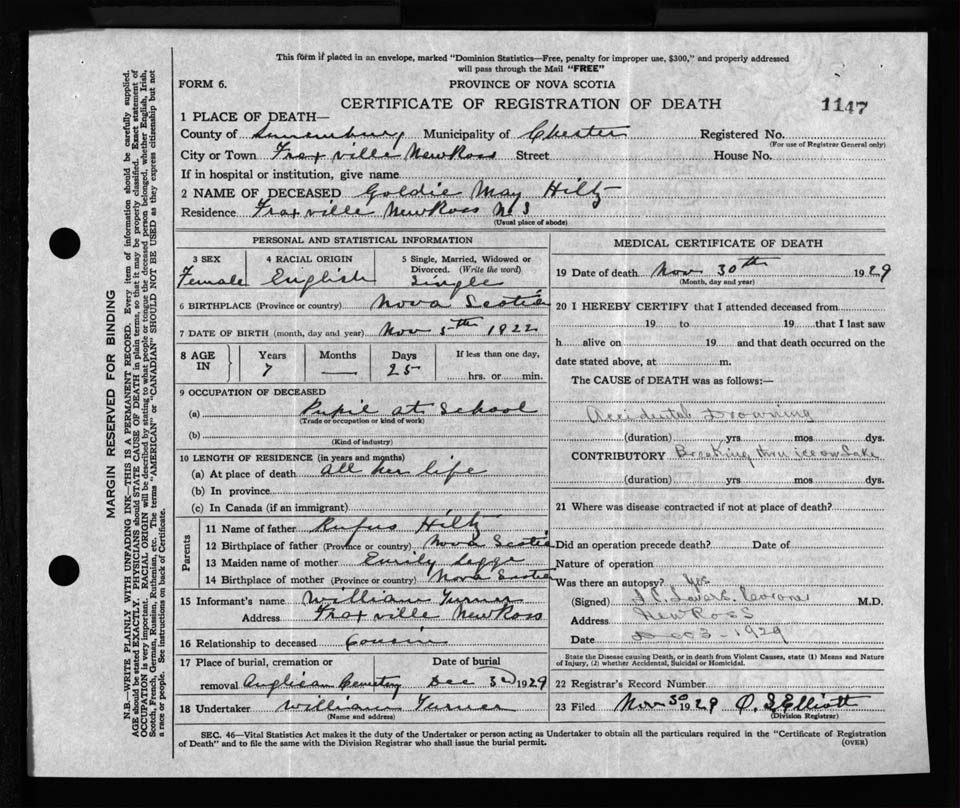 This form if placed in an envelope, marked "Dominion Statistics—Free, penalty for improper use, $300," and properly addressed
will pass through the Mail "FREE"
FORM 6.
PROVINCE OF NOVA SCOTIA
CERTIFICATE OF REGISTRATION OF DEATH
1147
1 PLACE OF DEATH—
County of Lunenburg Municipality of Chester Registered No.
(For use of Registrar General only)
City or Town Fraxville New Ross Street House No.
If in hospital or institution, give name
2 NAME OF DECEASED Goldie May Hiltz
Residence Fraxville New Ross N S
(Usual place of abode)
PERSONAL AND STATISTICAL INFORMATION
3 SEX
Female
4 RACIAL ORIGIN
English
5 Single, Married, Widowed or Divorced. (Write the word)
Single
6 BIRTHPLACE (Province or country) Nova Scotia
7 DATE OF BIRTH (month, day and year) Nov 5th 1922
8 AGE IN
Years
7
Months
—
Days
25
If less than one day,
hrs. or min.
9 OCCUPATION OF DECEASED
(a) Pupil at School
(Trade or occupation or kind of work)
(b)
(Kind of industry)
10 LENGTH OF RESIDENCE (in years and months)
(a) At place of death all her life
(b) In province
(c) In Canada (if an immigrant)
Parents
11 Name of father Rufus Hiltz
12 Birthplace of father (Province or country) Nova Scotia
13 Maiden name of mother Emily
14 Birthplace of mother (Province or country) Nova Scotia
15 Informant's name William Turner
Address Fraxville New Ross
16 Relationship to deceased Cousin
17 Place of burial, cremation or removal Anglican Cemetery
Date of burial
Dec 3rd 1929
18 Undertaker William Turner
(Name and address)
MEDICAL CERTIFICATE OF DEATH
19 Date of death Nov 30th 1929
(Month, day and year)
20 I HEREBY CERTIFY that I attended deceased from
19 to 19 that I last saw
h alive on 19 and that death occurred on the
date stated above, at m.
The CAUSE of DEATH was as follows:—
Accidental Drowning
(duration) yrs. mos. dys.
CONTRIBUTORY Breaking thru ice on Lake
(duration) yrs. mos. dys.
21 Where was disease contracted if not at place of death?
Did an operation precede death? Date of
Nature of operation
Was there an autopsy? Yes
(Signed) Coroner M.D.
Address New Ross
Date Dec 3-1929
State the Disease causing Death, or in death from Violent Causes, state (1) Means and Nature
of Injury, (2) whether Accidental, Suicidal or Homicidal.
22 Registrar's Record Number
23 Filed Nov 30 1929 Elliott
(Division Registrar)
SEC. 46—Vital Statistics Act makes it the duty of the Undertaker or person acting as Undertaker to obtain all the particulars required in the "Certificate of Registration
of Death" and to file the same with the Division Registrar who shall issue the burial permit.
(OVER)
MARGIN RESERVED FOR BINDING
N.B.—WRITE PLAINLY WITH UNFADING INK—THIS IS A PERMANENT RECORD. Every item of information should be carefully supplied.
AGE should be stated EXACTLY. PHYSICIANS should STATE CAUSE OF DEATH in plain terms, so that it may be properly classified. Exact statement of
OCCUPATION is very important. RACIAL ORIGIN will be described by stating to what people or tongue the deceased person belonged, whether English, Irish,
Scotch, French, German, Russian, Ruthenian, etc. The terms "AMERICAN" or "CANADIAN" SHOULD NOT BE USED as they express citizenship but not
a race or people. See instructions on back of Certificate.